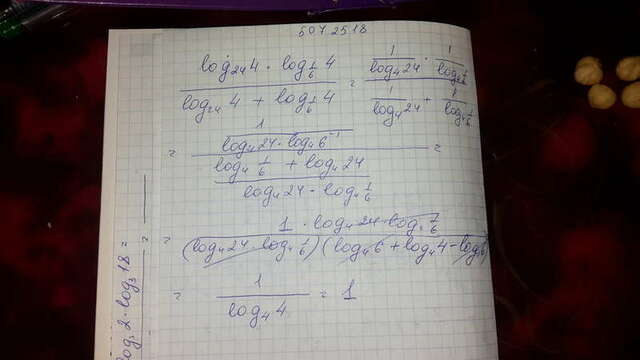 507 2518
log₂₄4 · log_{1/6}4 / log₂₄4 + log_{1/6}4 = 1/log₄24 · 1/log₄ / 1/log₄24 + 1/log₄1/6
= 1/log₄24 · log₄6⁻¹ / (log₄1/6 + log₄24)/(log₄24 · log₄1/6) =
= 1 · log₄24 · log₄1/6 / (log₄24 · log₄1/6)(log₄6 + log₄4 - log₄6)
= 1/log₄4 = 1
2 · log₃18 =